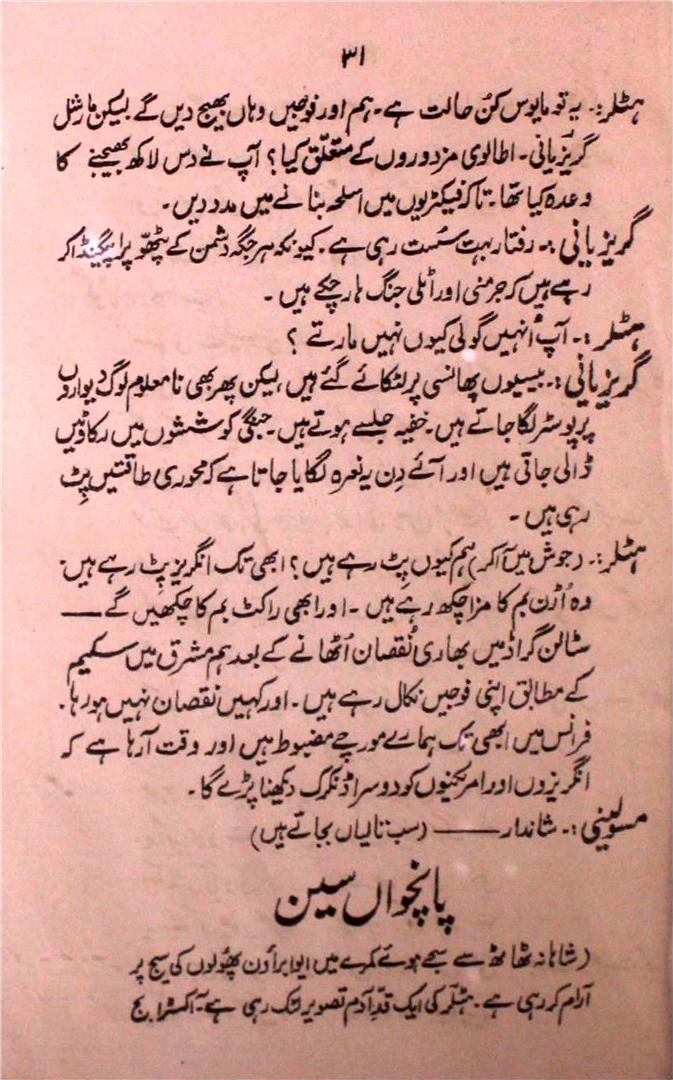 ۳۱
ہٹلر:۔ یہ تو مایوس کُن حالت ہے۔ ہم اور فوجیں وہاں بھیج دیں گے لیکن مارشل
گریزیانی۔ اطالوی مزدوروں کے متعلق کیا؟ آپ نے دس لاکھ بھیجنے کا
وعدہ کیا تھا۔ تاکہ فیکٹریوں میں اسلحہ بنانے میں مدد دیں۔
گریزیانی:۔ رفتار بہت سُست رہی ہے۔ کیونکہ ہر جگہ دشمن کے پٹھو پراپیگنڈا کر
رہے ہیں کہ جرمنی اور اٹلی جنگ ہار چکے ہیں۔
ہٹلر:۔ آپ اُنہیں گولی کیوں نہیں مارتے؟
گریزیانی:۔ بیسیوں پھانسی پر لٹکائے گئے ہیں، لیکن پھر بھی نامعلوم لوگ دیواروں
پر پوسٹر لگا جاتے ہیں۔ خفیہ جلسے ہوتے ہیں۔ جنگی کوششوں میں رکاوٹیں
ڈالی جاتی ہیں اور آئے دِن یہ نعرہ لگایا جاتا ہے کہ محوری طاقتیں پِٹ
رہی ہیں۔
ہٹلر:۔ (جوش میں آ کر) ہم کیوں پِٹ رہے ہیں؟ ابھی تک انگریز پِٹ رہے ہیں۔
وہ اُڑن بم کا مزا چکھ رہے ہیں۔ اور ابھی راکٹ بم کا چکھیں گے ——
سٹالن گراڈ میں بھاری نُقصان اُٹھانے کے بعد ہم مشرق میں سکیم
کے مطابق اپنی فوجیں نکال رہے ہیں۔ اور کہیں نقصان نہیں ہو رہا۔
فرانس میں ابھی تک ہمارے مورچے مضبوط ہیں اور وقت آرہا ہے کہ
انگریزوں اور امریکنیوں کو دوسرا ڈنکرک دیکھنا پڑے گا۔
مسولینی:۔ شاندار —— (سب تالیاں بجاتے ہیں)
پانچواں سین
(شاہانہ ٹھاٹھ سے سجے ہوئے کمرے میں ایوا براؤن پھُولوں کی سیج پر
آرام کر رہی ہے۔ ہٹلر کی ایک قدِ آدم تصویر لٹک رہی ہے۔ آکسٹرا بج